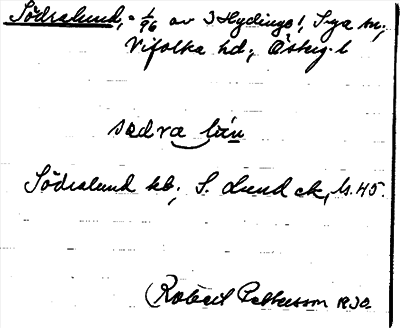 Södralund, = 1/96 av 3 Hydinge!, S-ga sn,
Vifolka hd, Östg. l
södra lün
Södralund kb, S. Lund ek, ls. 45.
Robert Pettersson 1930